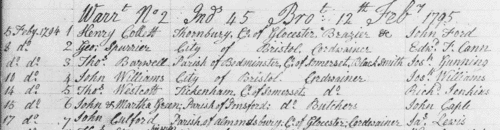 Warrt. No 2 Ind 45 Brot. 12th Feby 1795
5 Feby. 1794 1 Henry Collett Thornbury, C. of Glocester Brazier & John Ford
8 do. 2 Geo. Spurrier City of Bristol Cordwainer Edwd. T. Cann
do. do. 3 Thos. Barwell Parish of Bedminster, C. of Somerset, Black Smith Jos. Gunning
10 do. 4 John Williams City of Bristol Cordwainer Jos. Williams
14 do. 5 Thos. Westcott Tickenham, C. of Somerset do. Richd. Jenkins
16 do. 6 John & Martha Green, Parish of do. Butchers John Cople
17 do. 7 John Parish of Almondsbury, C. of Glocester, Cordwainer Jas. Lewis